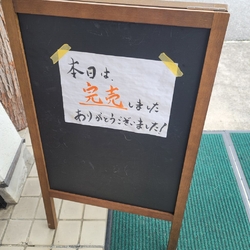 本日は、
完売しました
ありがとうございました!